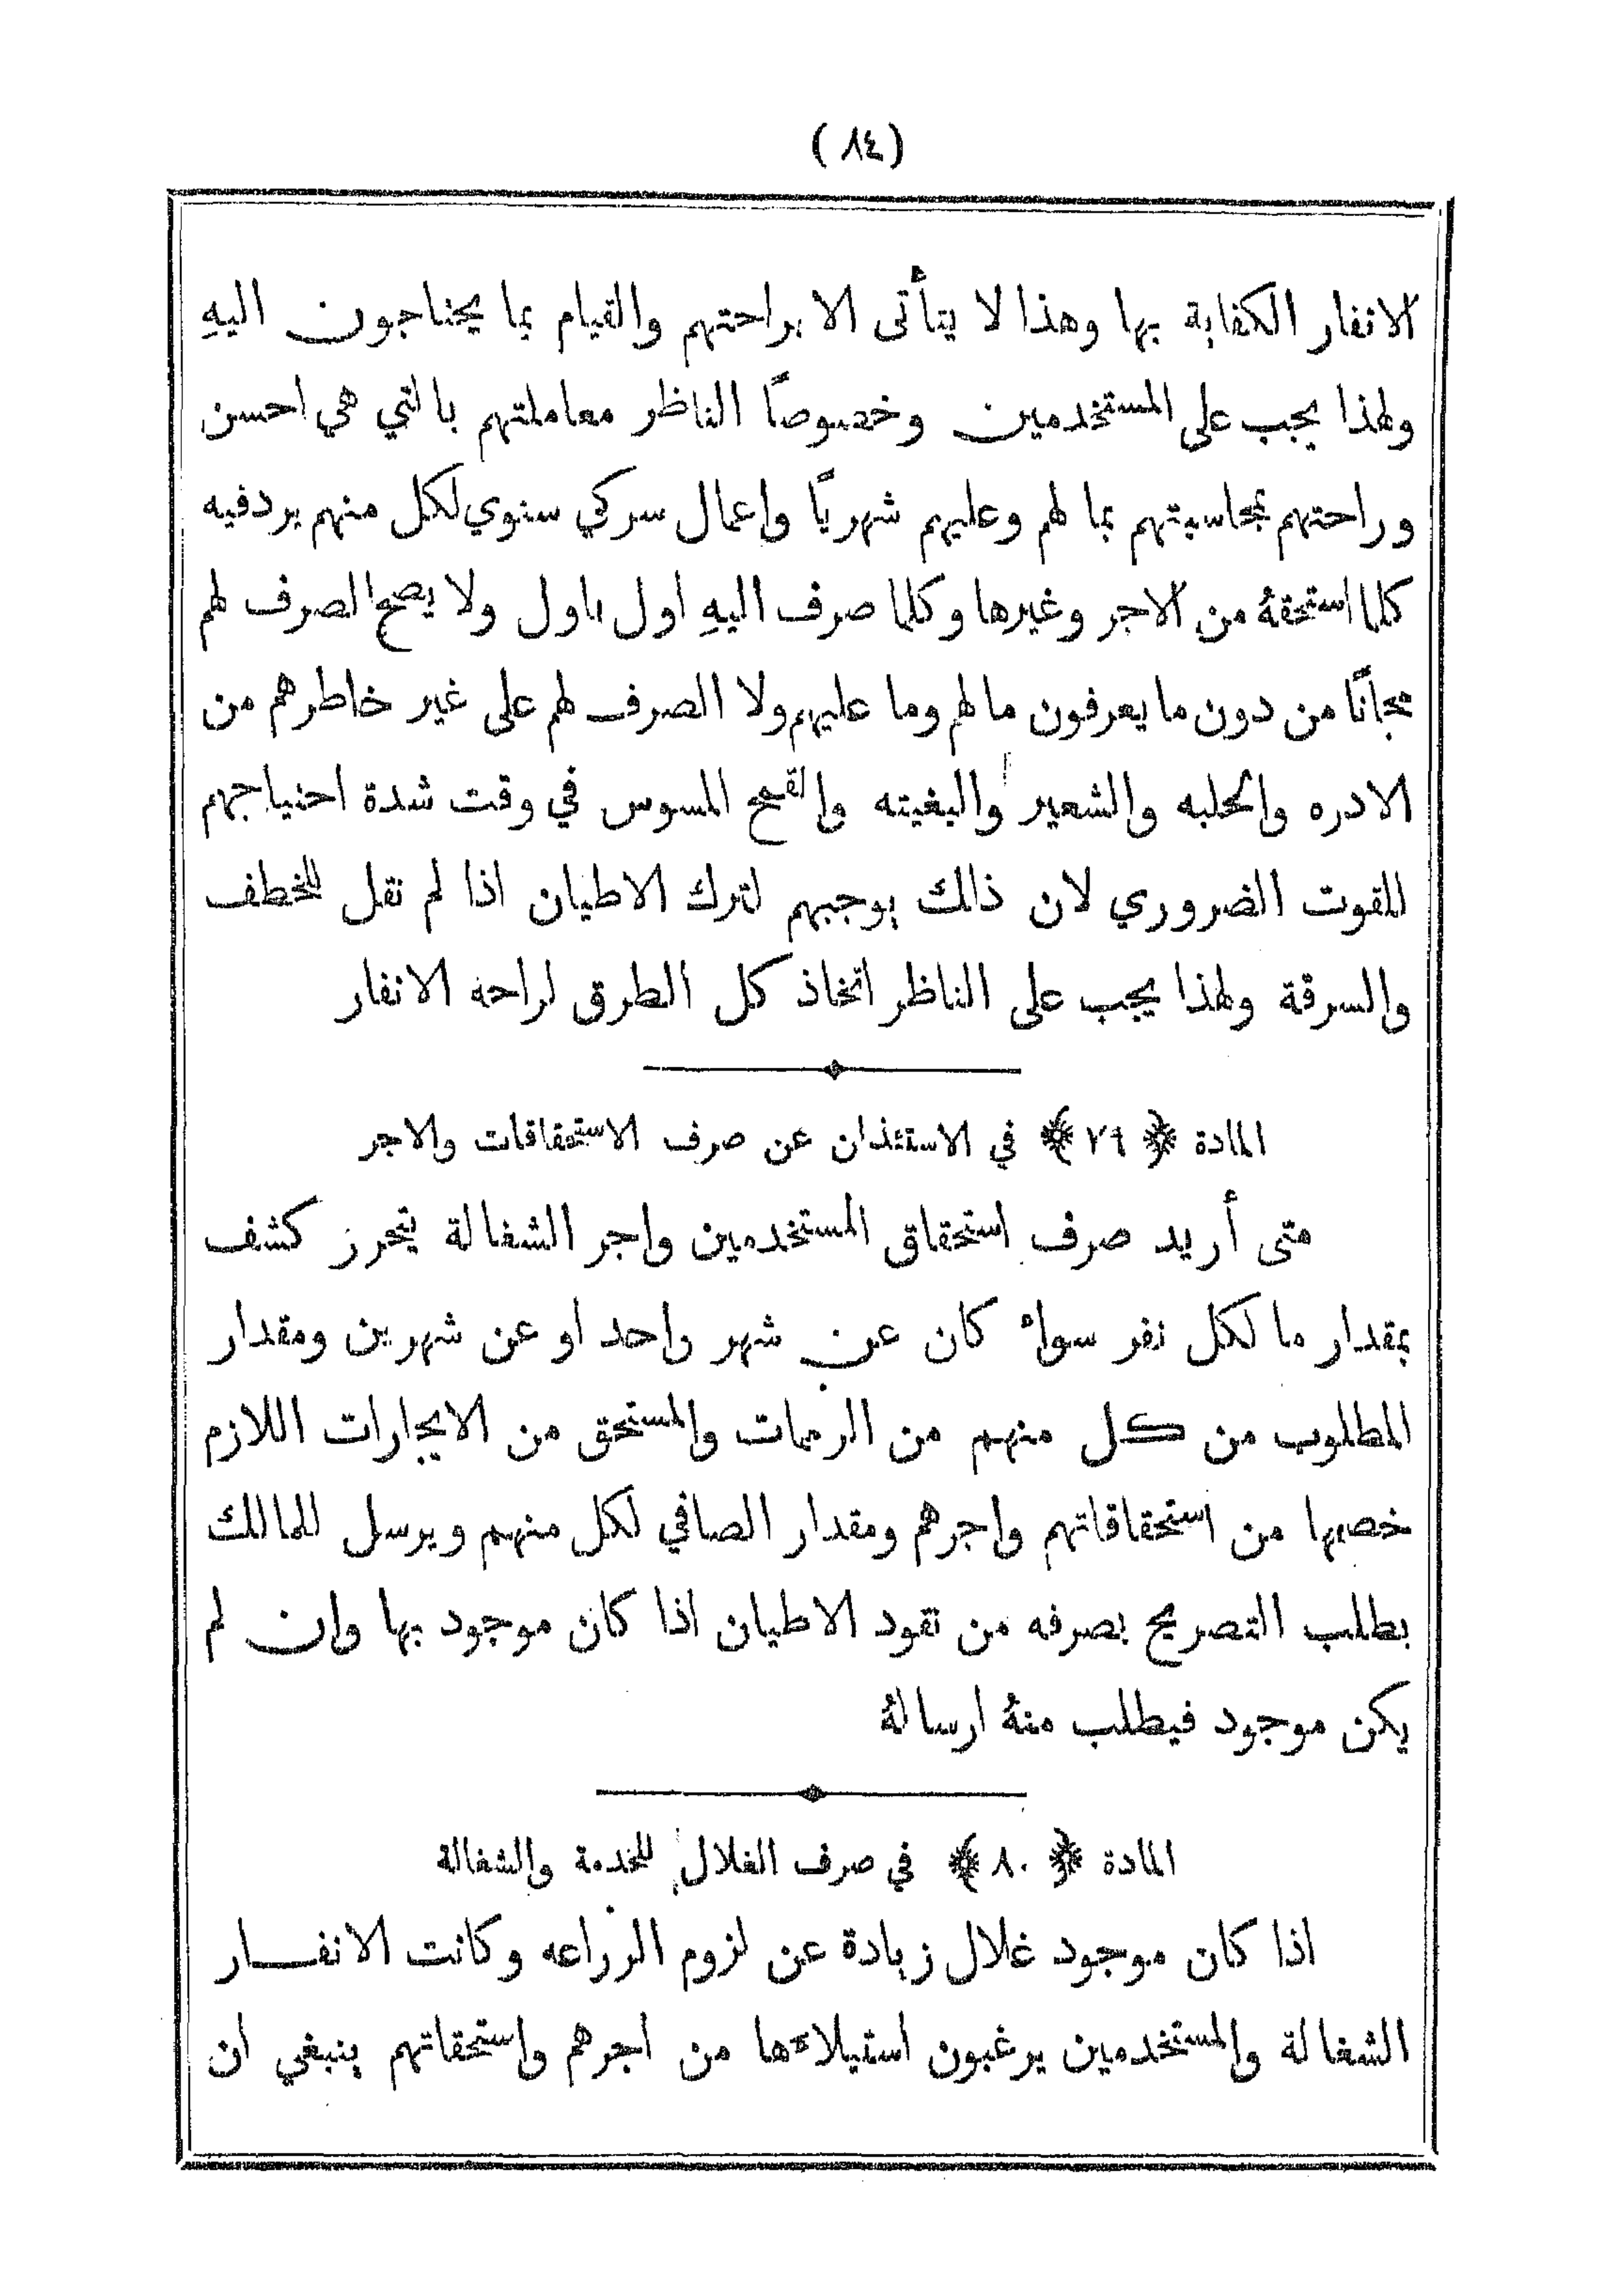 (٨٤)
الانفار الكفاية بها وهذا لا يتأتى الا براحتهم والقيام بما يحتاجون اليهِ
ولهذا يجب على المستخدمين وخصوصاً الناظر معاملتهم بالتي هي احسن
وراحتهم بمحاسبتهم بما لهم وعليهم شهرياً واعمال سركي سنوي لكل منهم يرد فيه
كلما استحقهُ من الاجر وغيرها وكلما صرف اليهِ اول باول ولا يصح الصرف لهم
مجاناً من دون ما يعرفون ما لهم وما عليهم ولا الصرف لهم على غير خاطرهم من
الادره والحلبه والشعير والبغيته والقمح المسوس في وقت شدة احتياجهم
للقوت الضروري لان ذلك يوجبهم لترك الاطيان اذا لم نقل للخطف
والسرقة ولهذا يجب على الناظر اتخاذ كل الطرق لراحه الانفار
المادة ﴿ ٧٩ ﴾ في الاستئذان عن صرف الاستحقاقات والاجر
متى أريد صرف استحقاق المستخدمين واجر الشغالة يتحرر كشف
بمقدار ما لكل نفر سواء كان عن شهر واحد او عن شهرين ومقدار
المطلوب من كل منهم من الرميات والمستحق من الايجارات اللازم
خصمها من استحقاقاتهم واجرهم ومقدار الصافي لكل منهم ويرسل للمالك
بطلب التصريح بصرفه من نقود الاطيان اذا كان موجود بها وان لم
يكن موجود فيطلب منهُ ارسالهُ
المادة ﴿ ٨٠ ﴾ في صرف الغلال للخدمة والشغالة
اذا كان موجود غلال زيادة عن لزوم الزراعه وكانت الانفـــار
الشغالة والمستخدمين يرغبون استيلاءها من اجرهم واستحقاتهم ينبغي ان